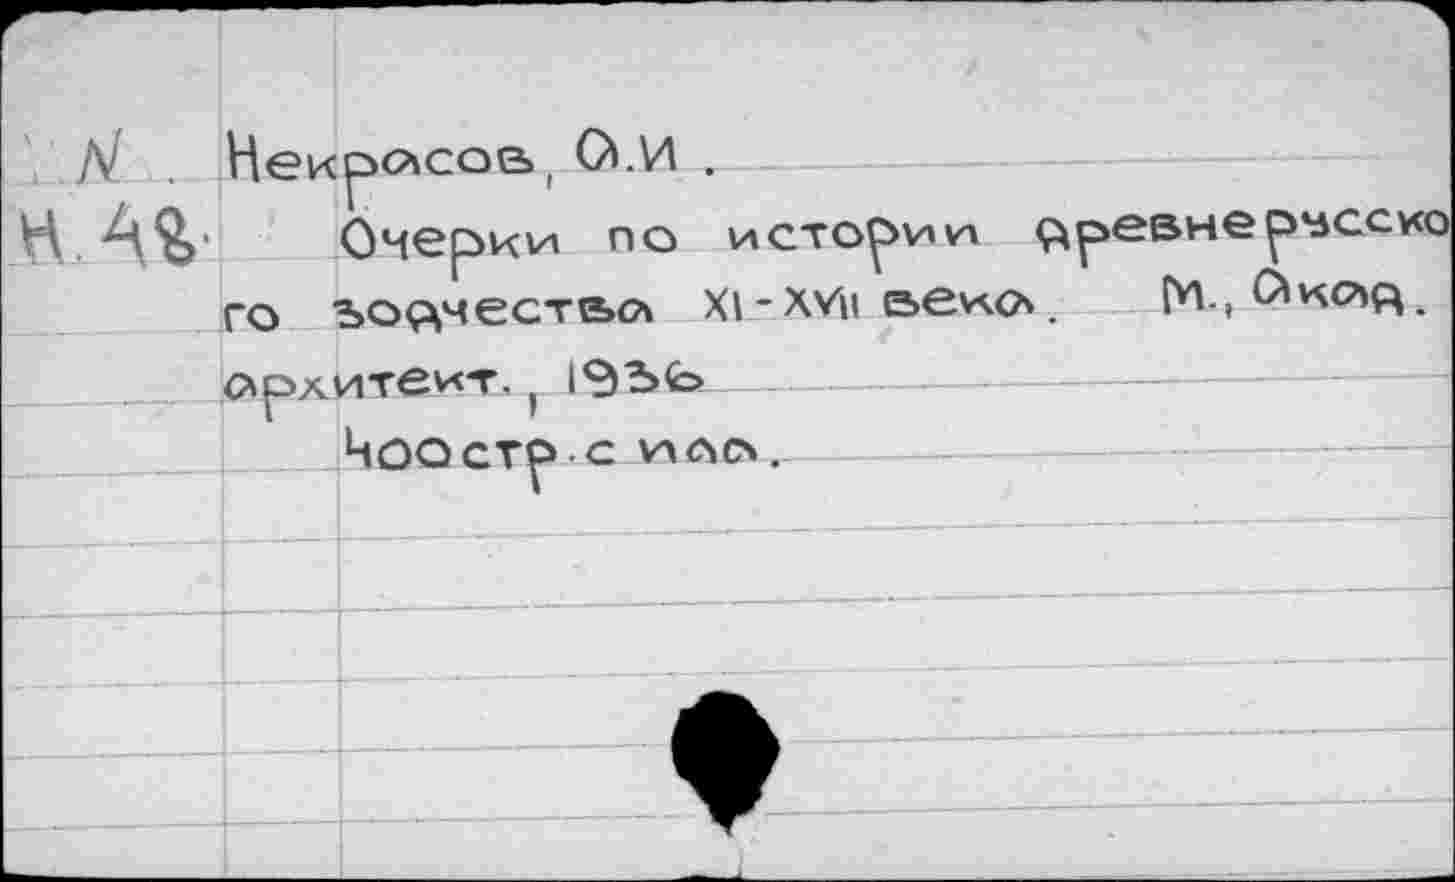 N . Некрасов, А.И .
Н.48. Очерки по истории древнерусско
го зодчества XI-XVII века. М., Акад.
архитект., 1936
400 стр. с илл.